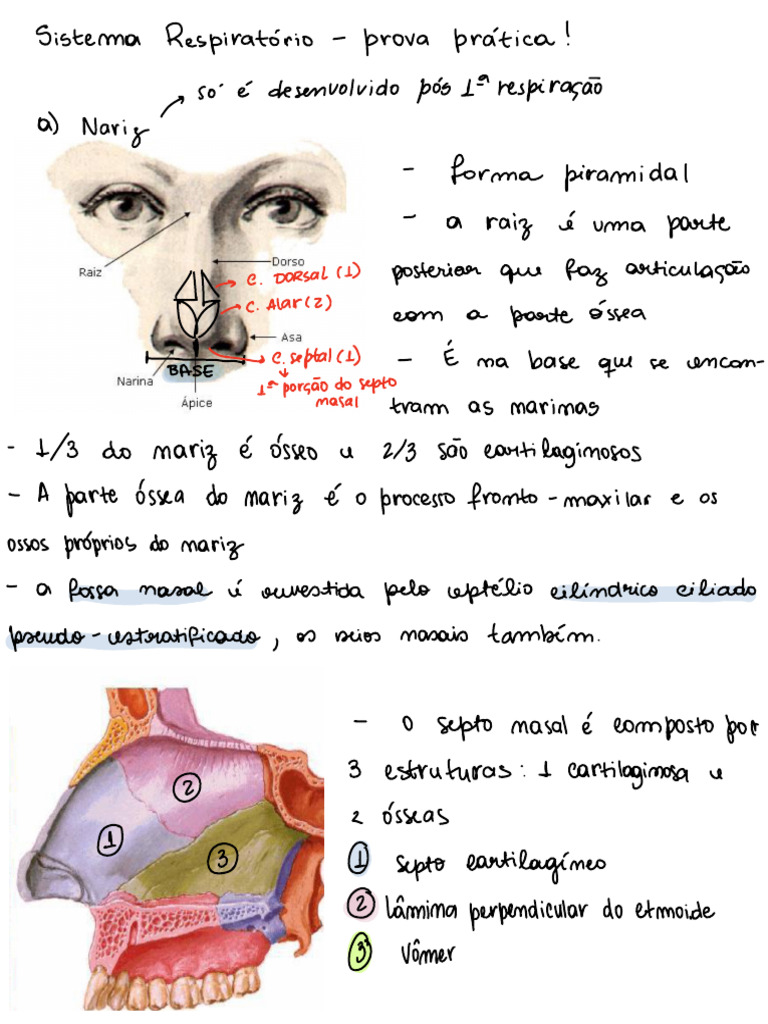 Sistema Respiratório - prova prática!
só é desenvolvido pós 1ª respiração
a) Nariz
Raiz
Dorso
C. DORSAL (1)
C. ALAR (2)
Asa
C. septal (1)
1ª porção do septo
nasal
BASE
Narina
Ápice
- forma piramidal
- a raiz é uma parte
posterior que faz articulação
com a parte óssea
- É na base que se encon-
tram as narinas
- 1/3 do nariz é ósseo e 2/3 são cartilaginosos
- A parte óssea do nariz é o processo fronto-maxilar e os
ossos próprios do nariz
- a fossa nasal é revestida pelo eptélio cilíndrico ciliado
pseudo-estratificado, os seios nasais também.
- O septo nasal é composto por
3 estruturas: 1 cartilaginosa e
2 ósseas
1
2
3
1 septo cartilagíneo
2 lâmina perpendicular do etmoide
3 vômer